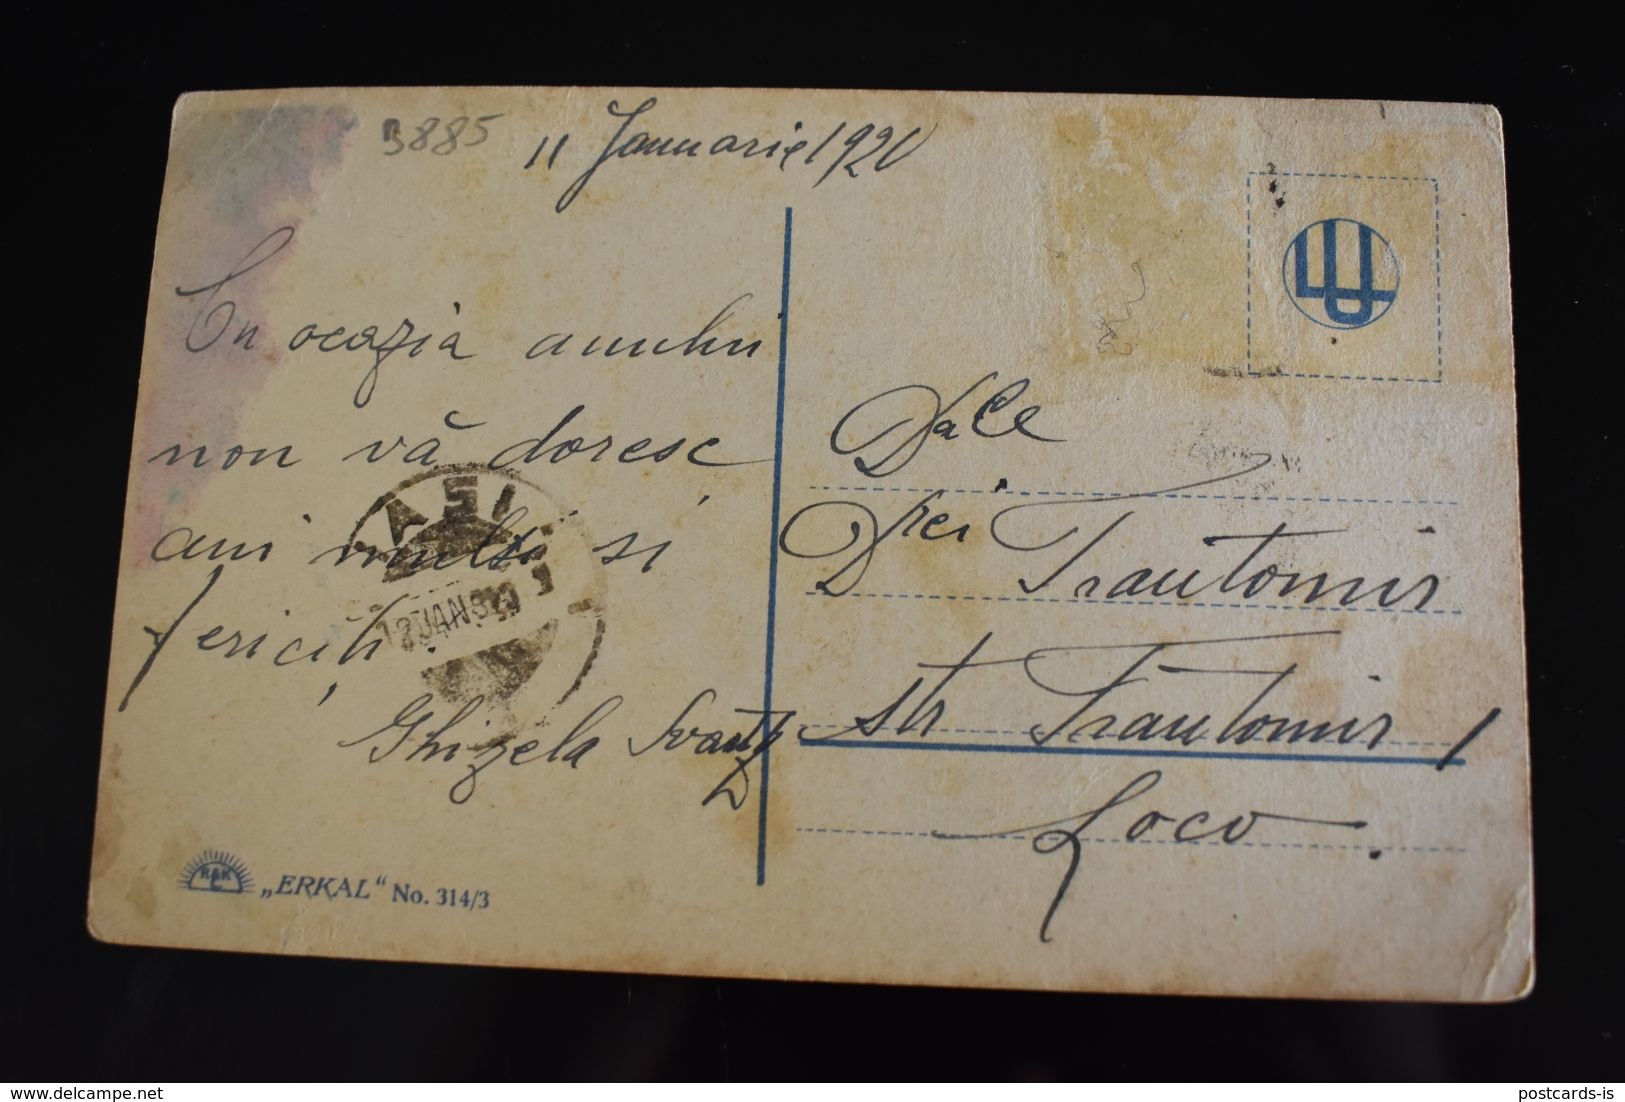 3885
11 Januarie 1920
Cu ocazia anului
nou vă doresc
ani mulți și
fericiți.
Ghizela Svartz
IAȘI
12 JAN 920
D-sale
D-rei Trautomir
str Trautomir 1
Loco.
R&K
L
„ERKAL“ No. 314/3
delcampe.net
postcards-is